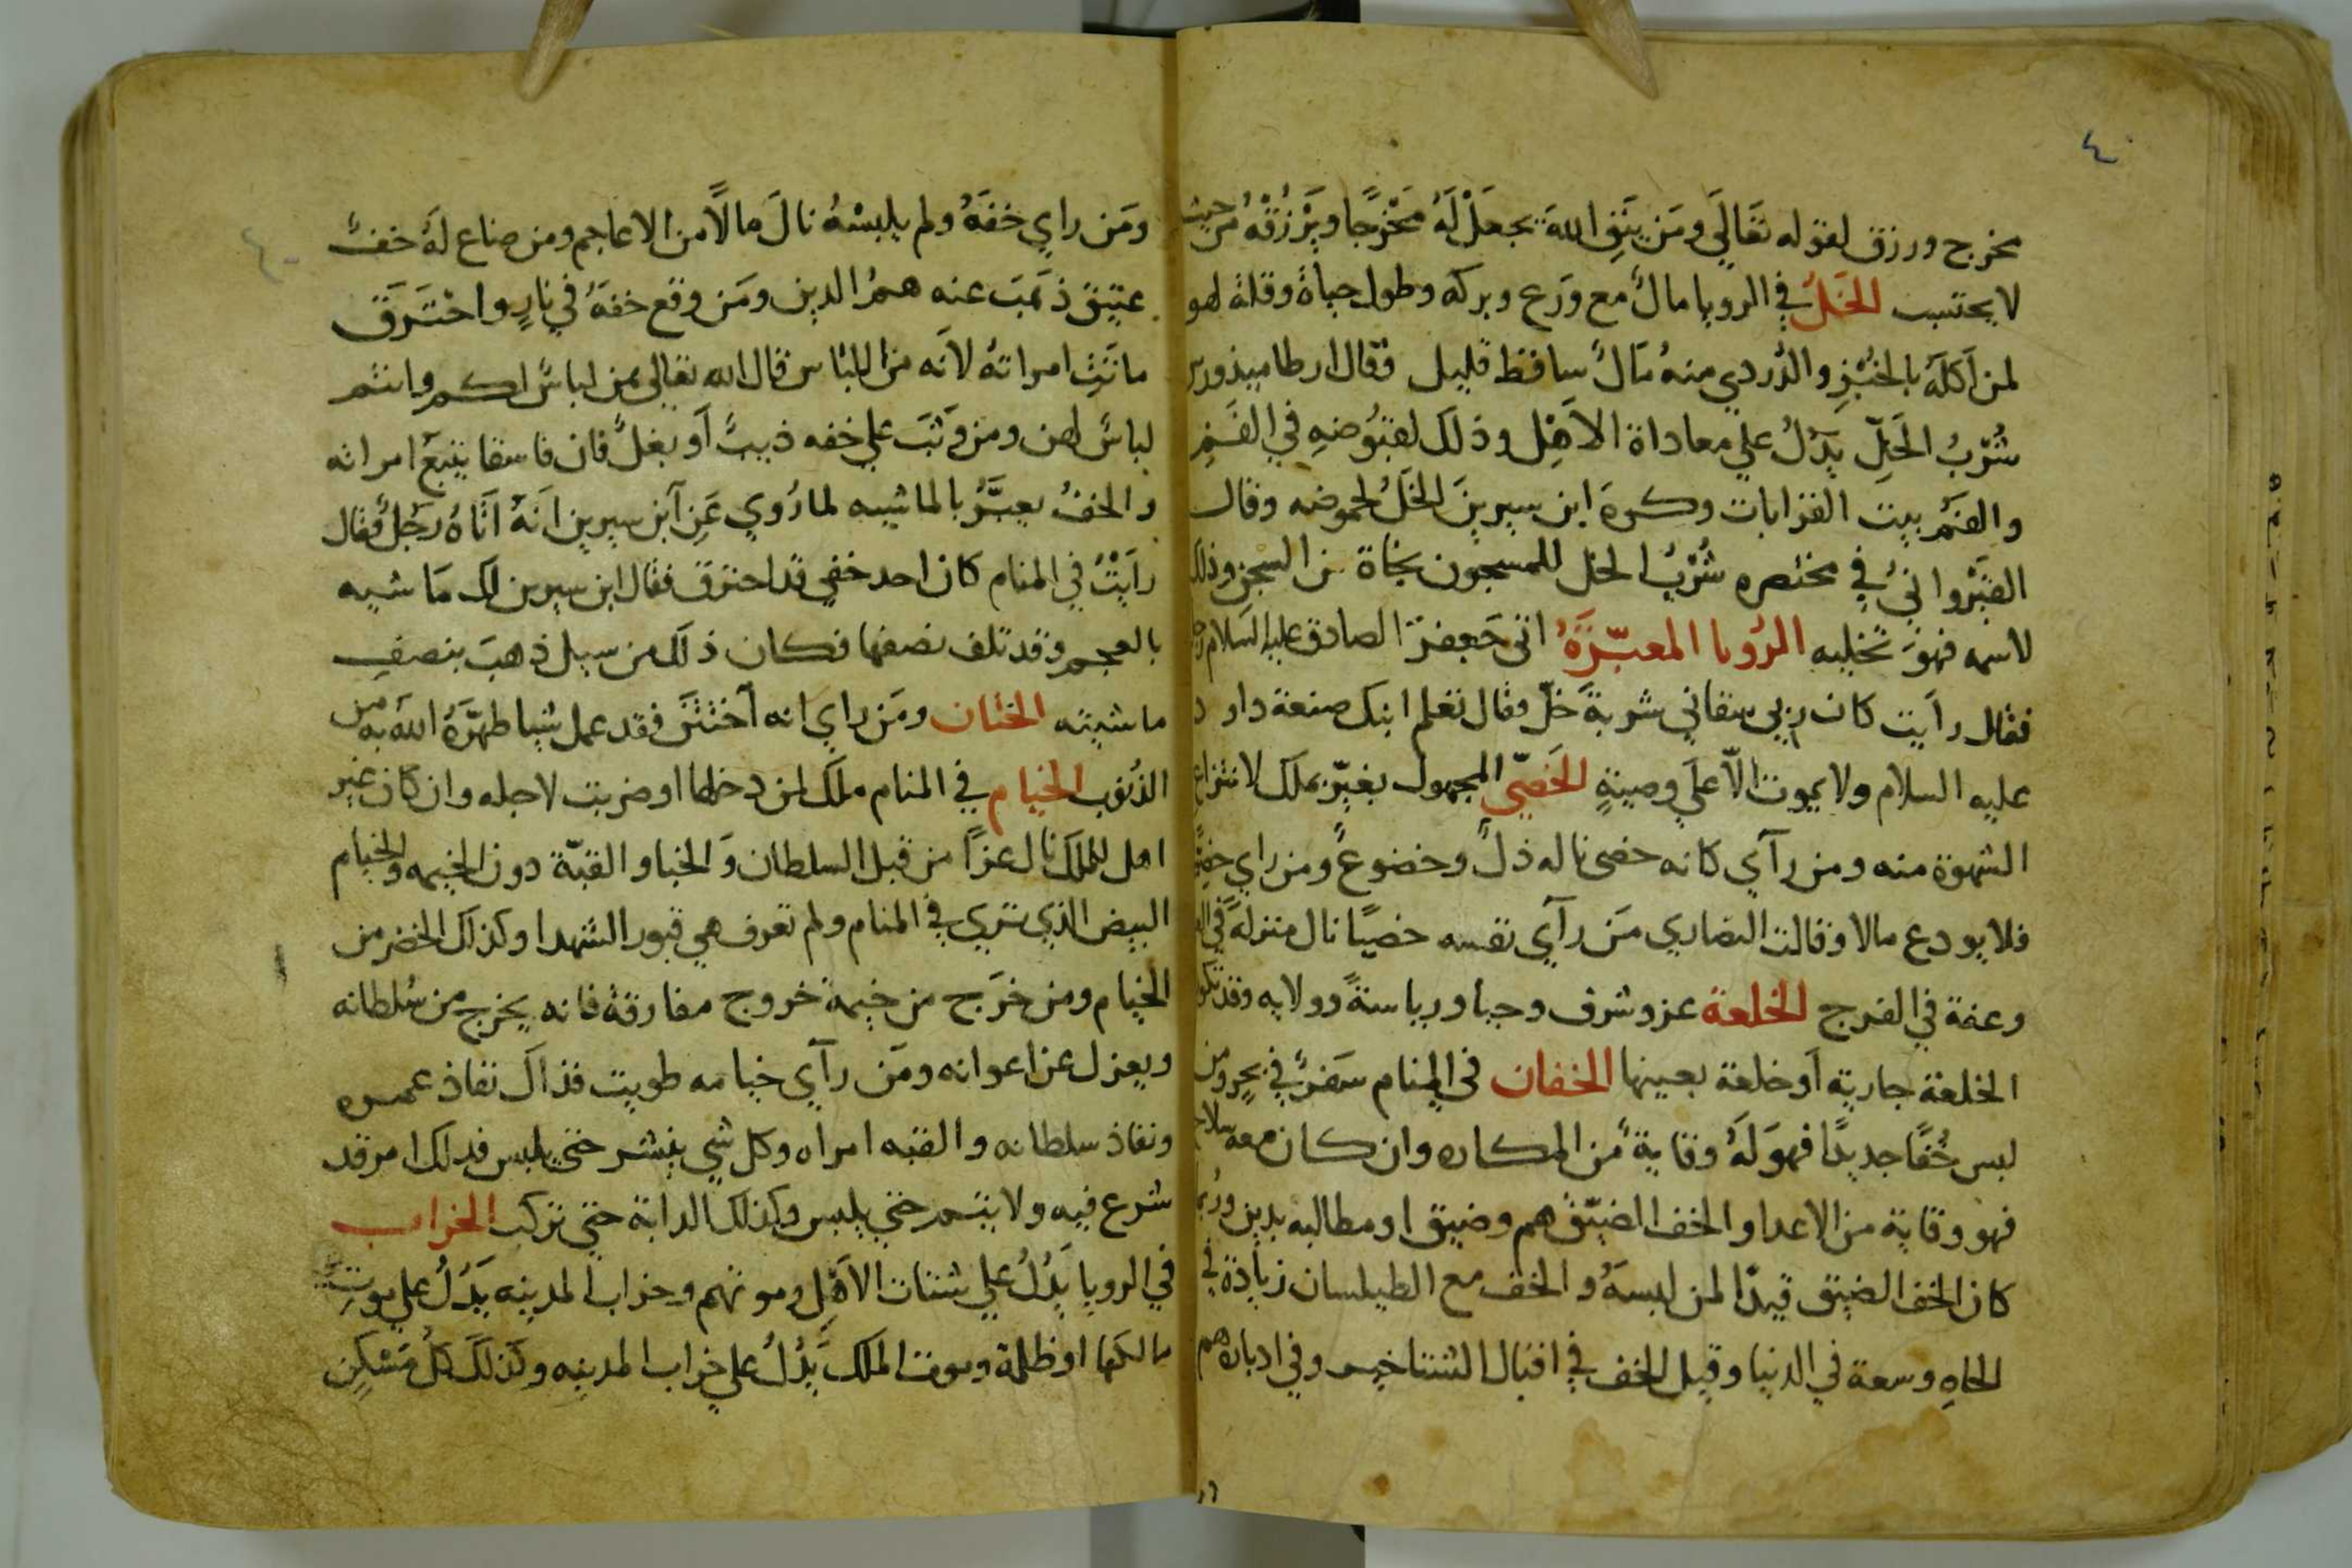 ٤٠
مخرج ورزق لقوله تَعَالَي ومَن يتَقِ اللهَ يجعَلْ لَهُ مَخْرَجًا ويَرْزُقْهُ من حيث
لا يحتسب الخَلُ في الرويا مالٌ مع ورَع وبركه وطول حياة وقلة لهو
لمن اَكلَهُ بالخُبْزِ والدُردي منهُ مَالٌ ساقط قليل فقال ارطاميدورس
شُرْبُ الخَلِّ يَدُلُ علي معاداة الاَهْل وذلك لقبُوضهِ في الفَمِ
والفَمُ بيت القرابات وكرهَ ابن سيرينَ الخَلُ لحموضه وقال
القَيْرَوانيُ في مختصره شُرْبُ الخل للمسجون نجاة من السجن وذلك
لاسمه فهوَ تخليه الرُويا المعبّرَةُ اتى جَعفرَ الصادق عليه السلام رجل
فقال رايت كان ابي سقاني شربةَ خلّ فقال تعلم ابنك صنعة داود
عليه السلام ولا يموت الّا علَي وصيّةٍ الخَصّي المجهول يعبّر بملك لانتزاع
الشهوة منه ومن رآي كانه خصى ناله ذلٌ وخضوعٌ ومن راي خصيًّا
فلا يودع مالا وقالت النصاري مَن رآي نفسه خصيًا نال منزلةً في
وعفة في الفرج الخلعة عز وشرف وجاه ورياسةً وولايه وقد تكون
الخلعة جارية اَو خلعة بعينها الخفان في المنام سَفرٌ في بحرٍ ومن
لبس خُفًا جديدًا فهوَ لَهُ وقايةٌ من المكاره وان كان معه سلاح
فهو وقاية من الاعدا والخف الضيّق هم وضيق او مطالبه بدين وربما
كان الخف الضيق قيدًا لمن لبسَهُ والخف مع الطيلسان زيادة في
الجاهِ وسعة في الدنيا وقيل الخف في اقبال الشتا خير وفي ادباره هم
ومَن راي خفهُ ولم يلبسْهُ نالَ مالًا من الاعاجم ومن ضاع لَهُ خفٌ
عتيق ذهَبَ عنه همُ الدين ومَن وقع خفهُ في نارٍ واحْتَرَقَ
ماتَتِ امراتهُ لانَه من اللباس قال الله تعالي هن لباسٌ لكم وانتم
لباسٌ لهن ومن وَثبَ علي خفه ذيبٌ اَو بغلٌ فان فاسقا يتبعُ امراته
والخفُ يعبَّرُ بالماشيه لما رُوي عَنِ ابن سيرين انَهُ اَتَاهُ رَجلٌ فقال
رايتُ في المنام كان احد خفي قد احترق فقال ابن سيرين لك مَاشيه
بالعجم وقد تلف نصفها فكان ذلك من سيل ذهبَ بنصفِ
ماشيته الختان ومَن راي انه اختتَن فقد عمل شيا طهّرَهُ اللهُ به من
الذُنوب الخيام في المنام ملك لمن دخلها او ضربت لاجله وان كان غير
اهل للملك نال عزًا من قبل السلطان وَالخبا والقبّة دون الخيمه والخيام
البيض الذي تري في المنام ولم تعرف هي قبور الشهدا وكذلك الخضر من
الخيام ومن خرَج من خيمة خروج مفارقة فانه يخرج من سُلطانه
ويعزل عن اعوانه ومَن رآي خيامه طويت فذاك نفاذ عمره
ونفاذ سلطانه والقبه امراه وكل شي ينشر حتي يلبس فدلك امر قد
شرع فيه ولا يتم حتي يلبس وكذلك الدابة حتي تركب الخراب
في الرويا يَدُلُ علي شتات الاَهل وموتهم وخراب المدينه يَدُلُ علي موتِ
مالكها او ظلمة وموت الملك يَدُلُ علي خراب المدينه وكذلكَ كلُ مَسْكِن